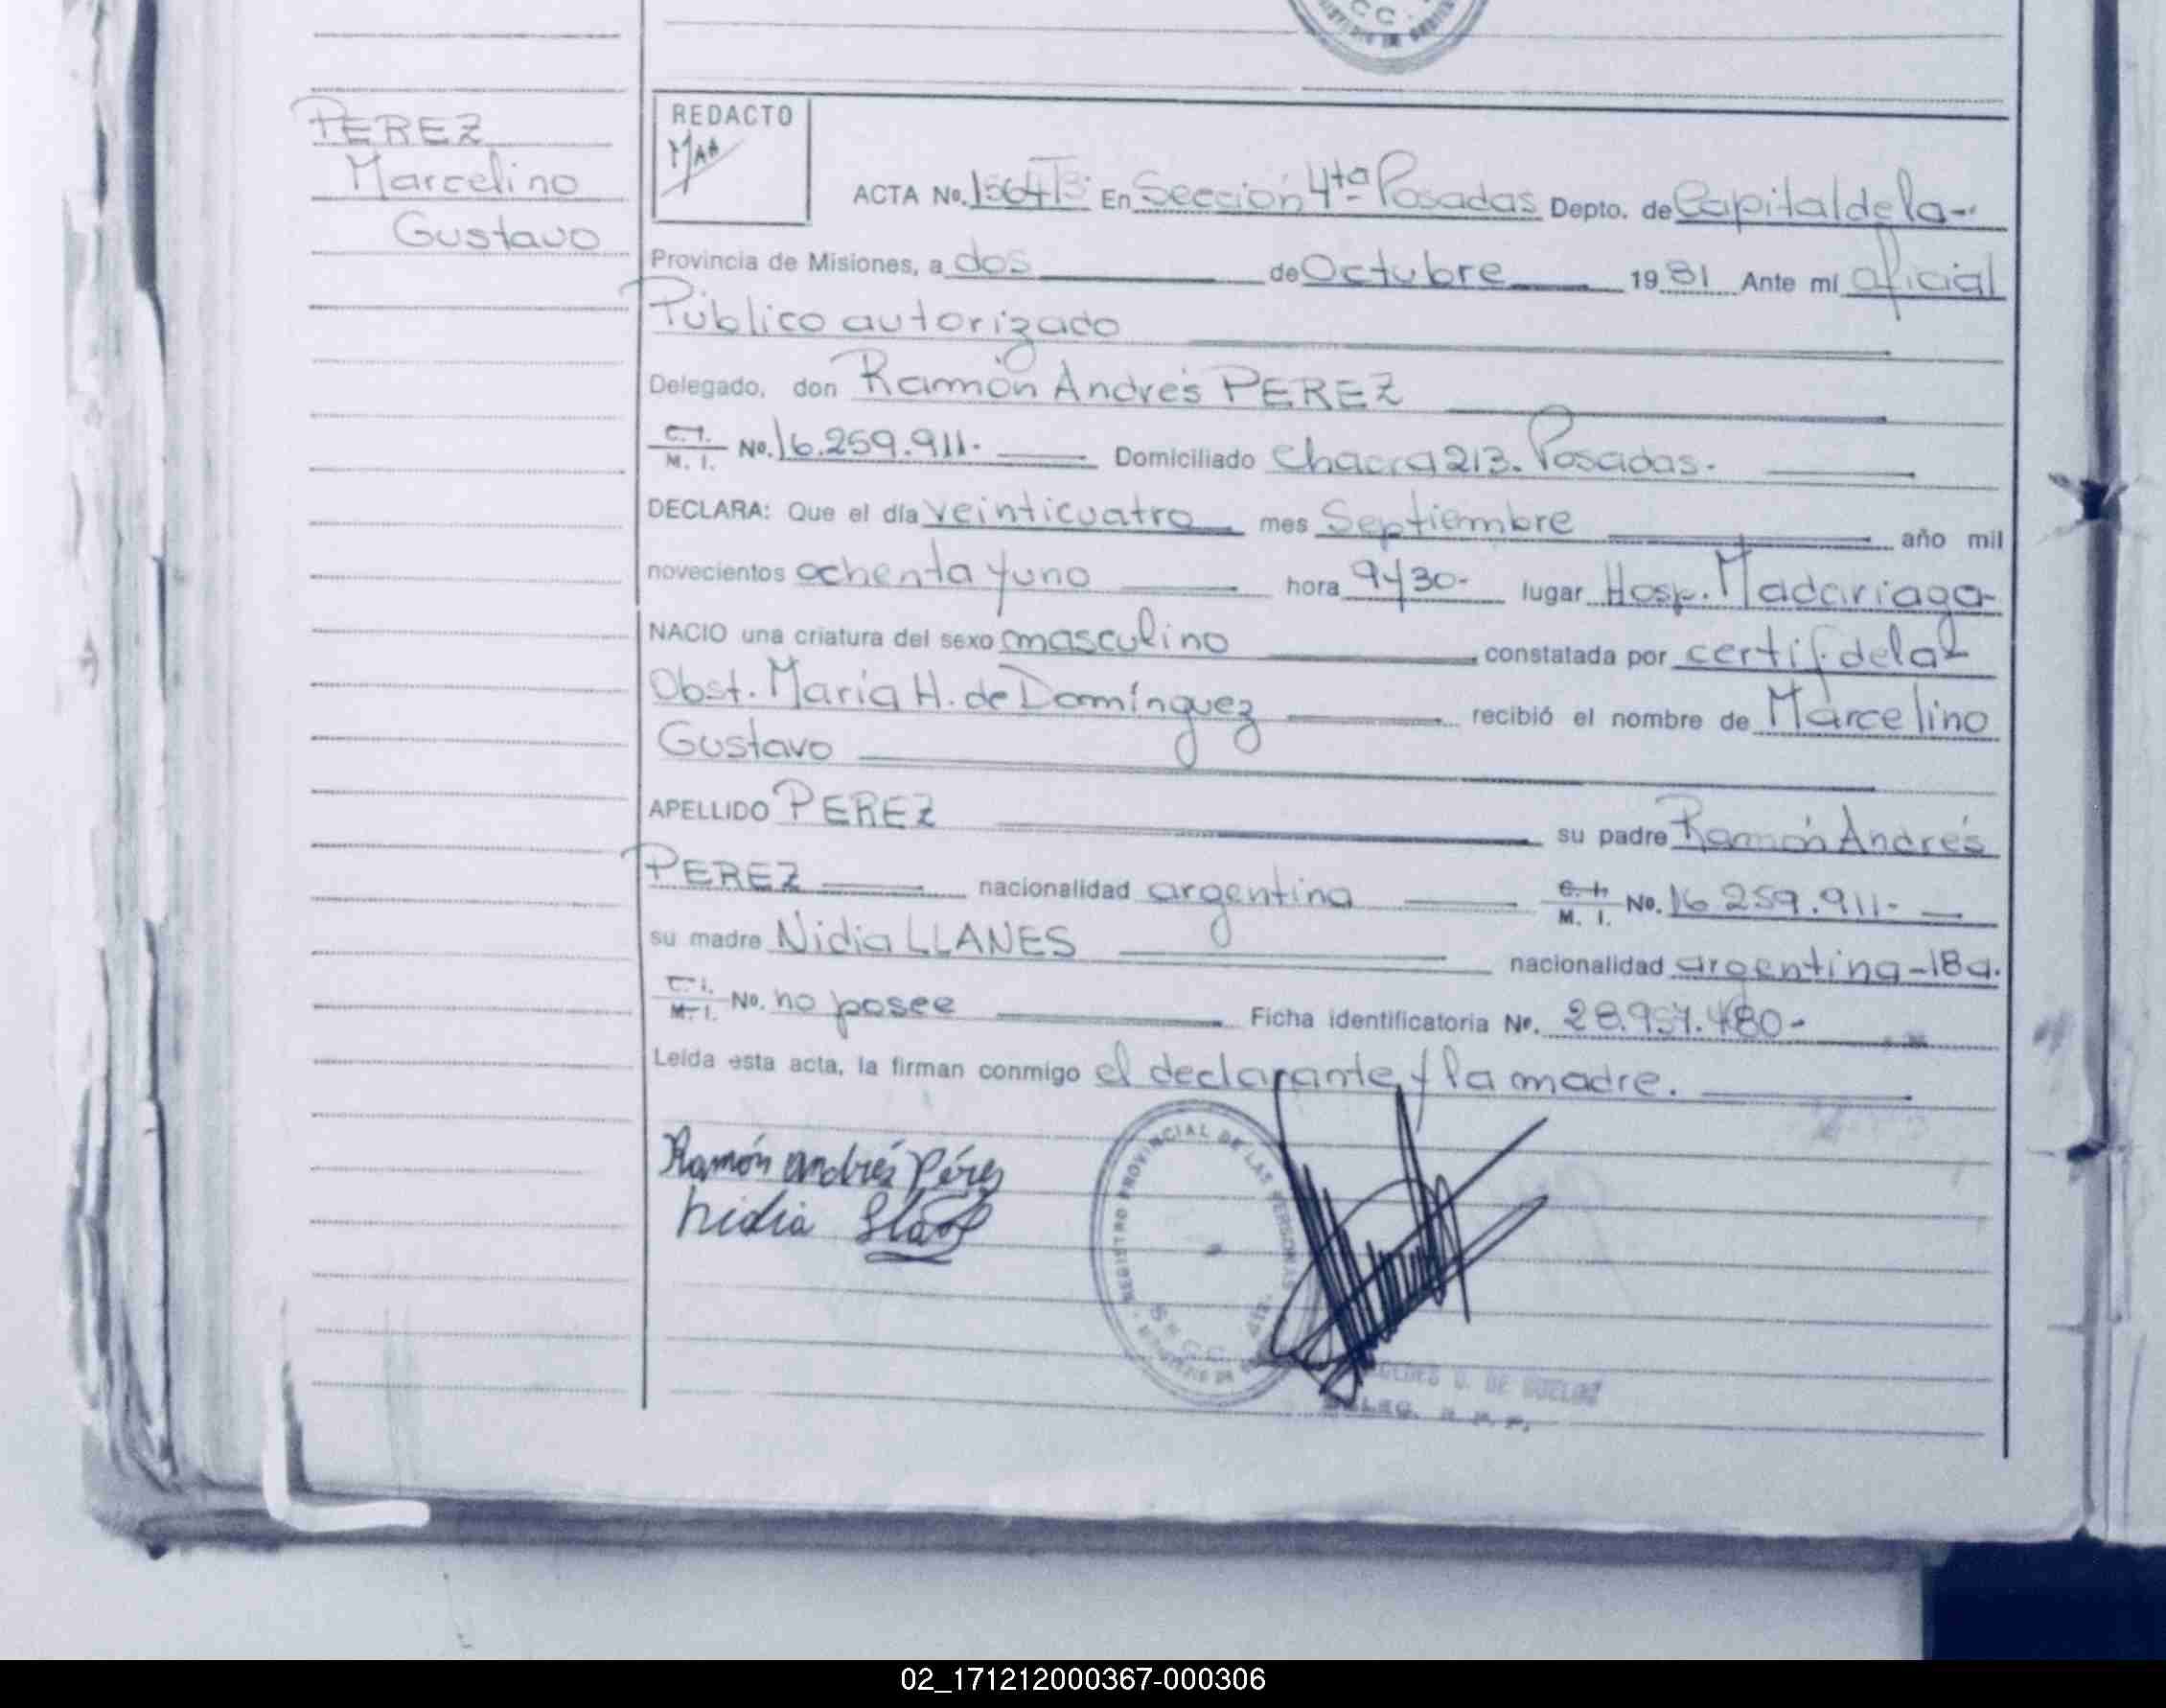 PEREZ
Marcelino
Gustavo
REDACTO
ACTA No. En Sección 4ta Posadas Depto. de Capital de la-
Provincia de Misiones, a dos de Octubre 1981 Ante mí oficial
Público autorizado
Delegado, don Ramón Andrés PEREZ
C.I. M. I. No. 16.259.911.- Domiciliado Chacra 213. Posadas.-
DECLARA: Que el día veinticuatro mes Septiembre año mil
novecientos ochenta y uno hora 9y30- lugar Hosp. Madariaga-
NACIO una criatura del sexo masculino constatada por certif de la
Obst. María H. de Domínguez recibió el nombre de Marcelino
Gustavo
APELLIDO PEREZ su padre Ramón Andrés
PEREZ nacionalidad argentina C. I. M. I. No. 16.259.911-
su madre Nidia LLANES nacionalidad argentina-18a.
C.I. M.I. No. no posee Ficha identificatoria Nº. 28.957.480-
Leída esta acta, la firman conmigo el declarante y la madre.
Ramón andrés Pérez
nidia
REGISTRO PROVINCIAL DE LAS PERSONAS
02_171212000367-000306